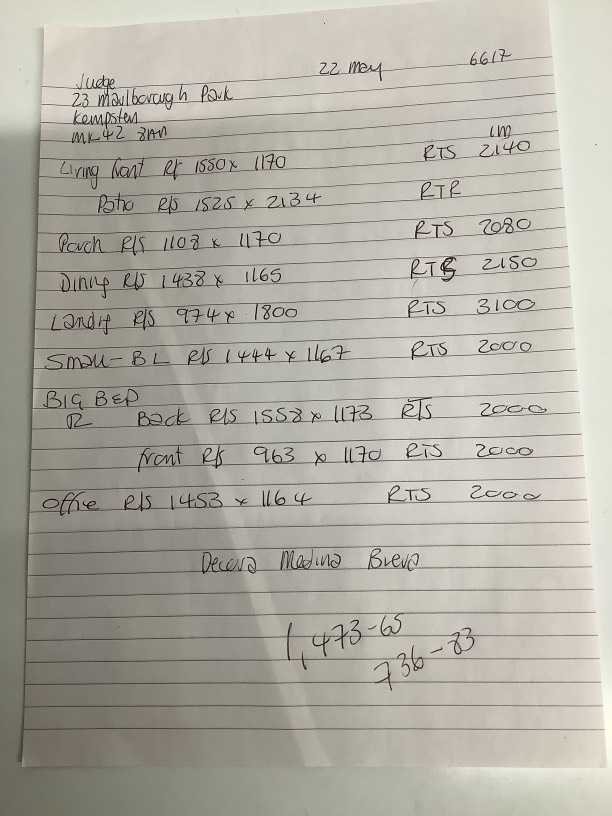 Judge 22 May 6617
23 Marlborough Park
Kempston
MK42 8AN
LM
Living front R/S 1550 x 1170 RTS 2140
Patio R/S 1525 x 2134 RTR
Porch R/S 1108 x 1170 RTS 2080
Dining R/S 1438 x 1165 RTS 2150
Landig R/S 974 x 1800 RTS 3100
Small-BL R/S 1444 x 1167 RTS 2000
BIG BED
Back R/S 1558 x 1173 RTS 2000
front R/S 963 x 1170 RTS 2000
Office R/S 1453 x 1164 RTS 2000
Decora Medina Breva
1,473-65
736-83